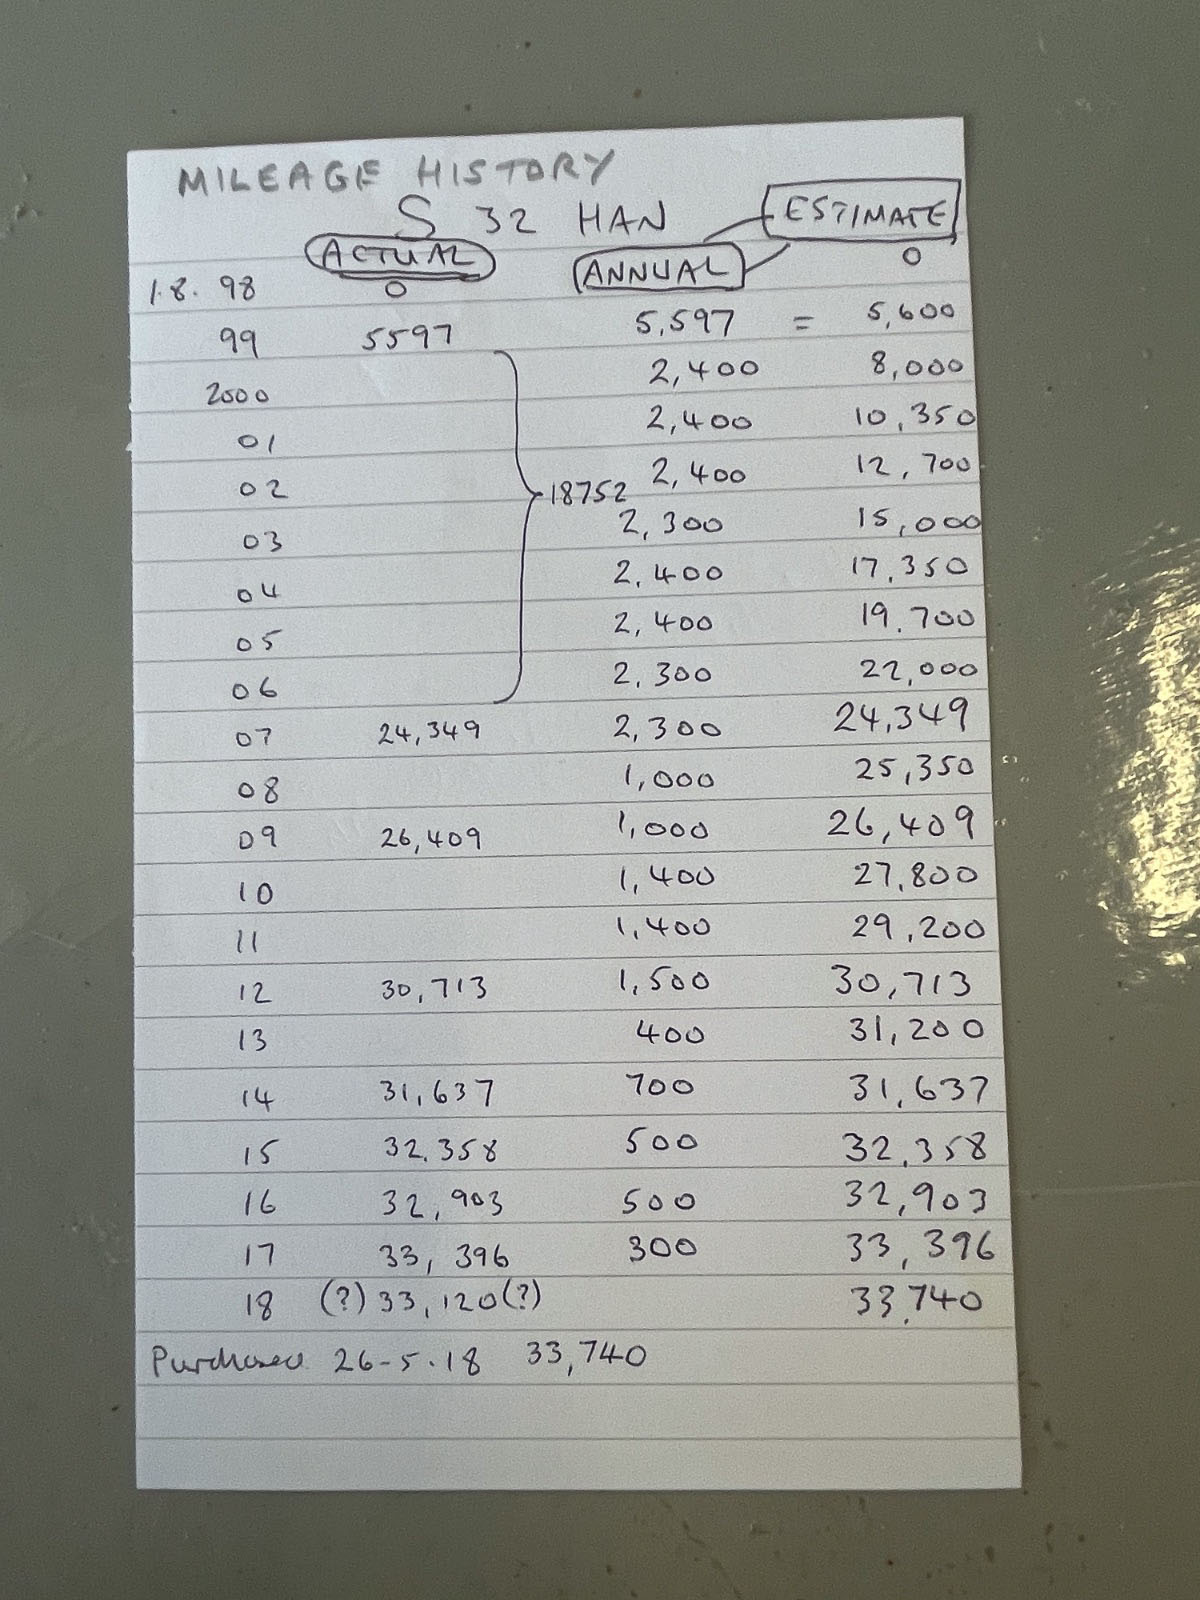 MILEAGE HISTORY
S 32 HAN ESTIMATE
ACTUAL ANNUAL 0
1.8.98 0
99 5597 5,597 = 5,600
2000 2,400 8,000
01 2,400 10,350
02 18752 2,400 12,700
03 2,300 15,000
04 2,400 17,350
05 2,400 19.700
06 2,300 22,000
07 24,349 2,300 24,349
08 1,000 25,350
09 26,409 1,000 26,409
10 1,400 27,800
11 1,400 29,200
12 30,713 1,500 30,713
13 400 31,200
14 31,637 700 31,637
15 32.358 500 32,358
16 32,903 500 32,903
17 33,396 300 33,396
18 (?) 33,120 (?) 33,740
Purchased 26-5.18 33,740